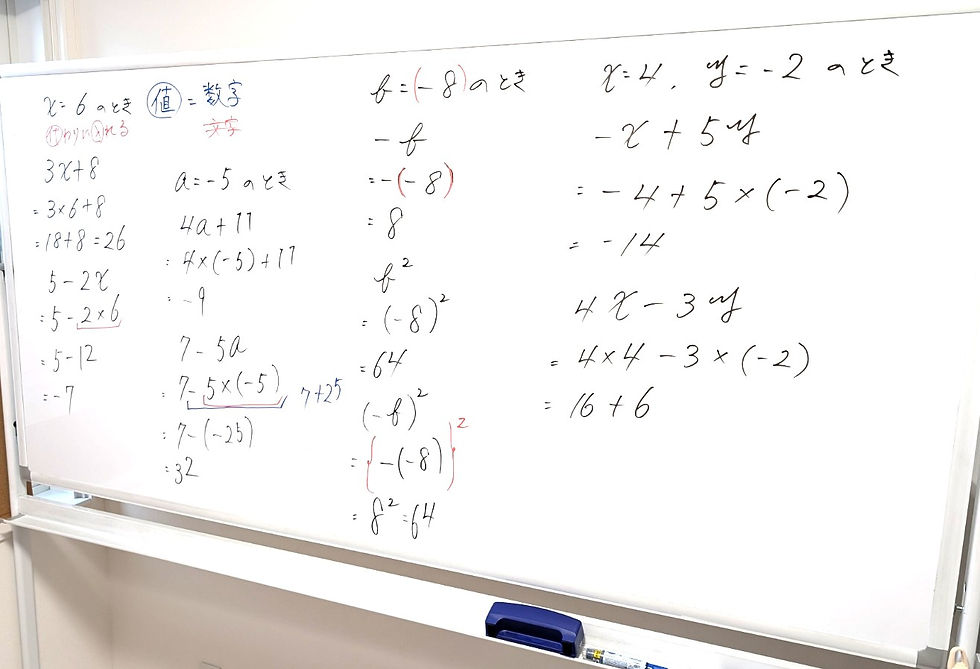 x=6のとき
代わりに入れる
3x+8
=3×6+8
=18+8=26
5-2x
=5-2×6
=5-12
=-7
値=数字
文字
a=-5のとき
4a+11
=4×(-5)+11
=-9
7-5a
=7-5×(-5) 7+25
=7-(-25)
=32
b=(-8)のとき
-b
=-(-8)
=8
b²
=(-8)²
=64
(-b)²
={-(-8)}²
=8²=64
x=4, y=-2のとき
-x+5y
=-4+5×(-2)
=-14
4x-3y
=4×4-3×(-2)
=16+6